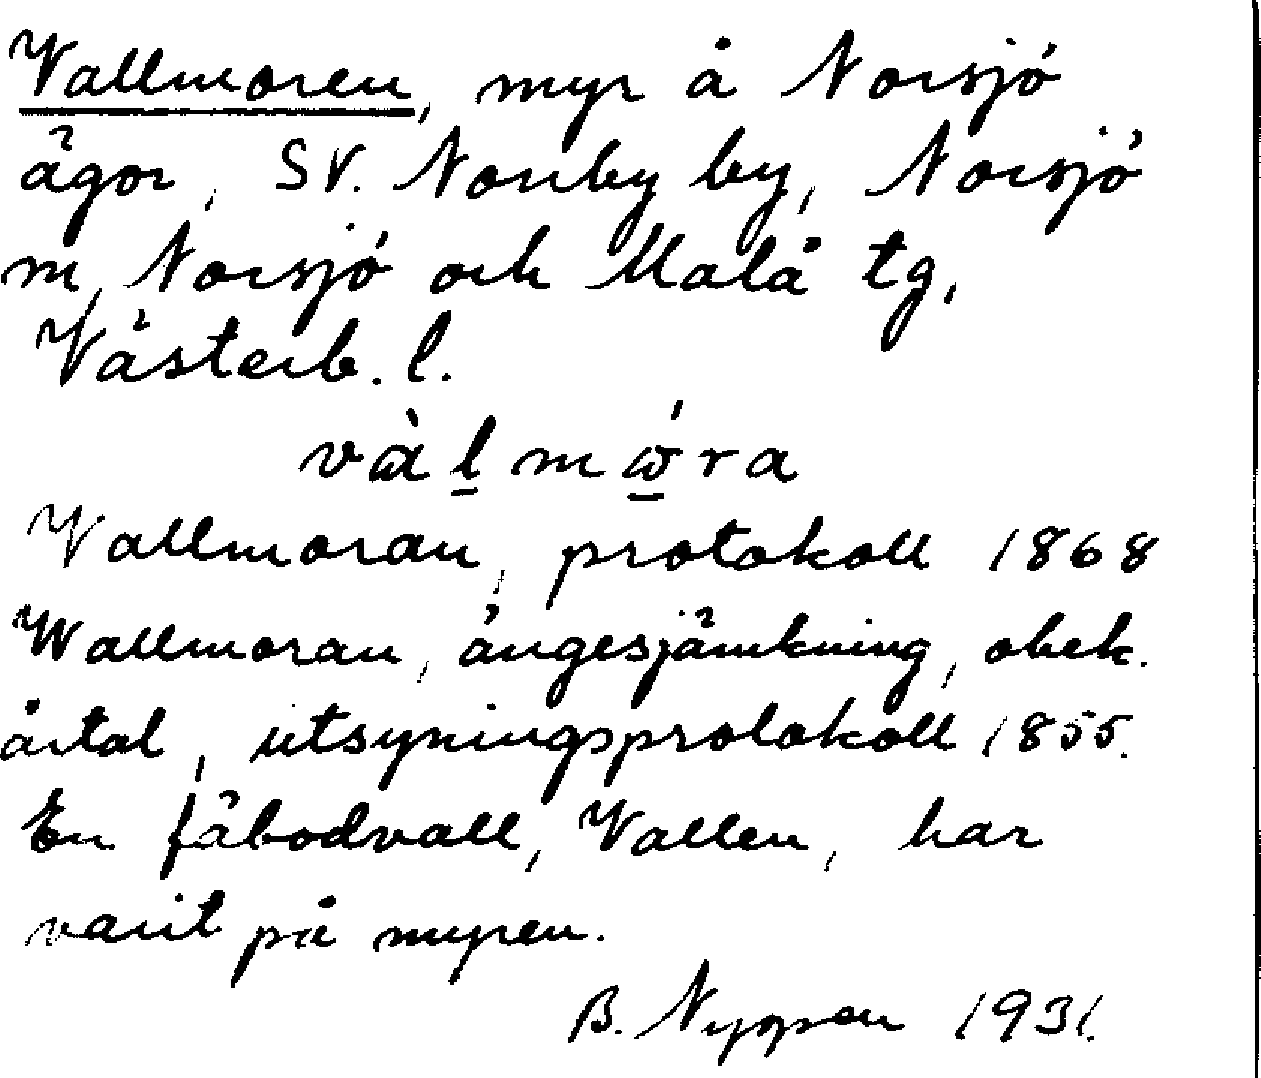 Vallmoren, myr å Norsjö
ägor, SV. Norrby by, Norsjö
m, Norsjö och Malå tg,
Västerb. l.
vàlmóra
Vallmoran, protokoll 1868
Wallmoran, ängesjämkning, obek.
årtal, utsyningsprotokoll 1855.
En fäbodvall, Vallen, har
varit på myren.
B. 1931.